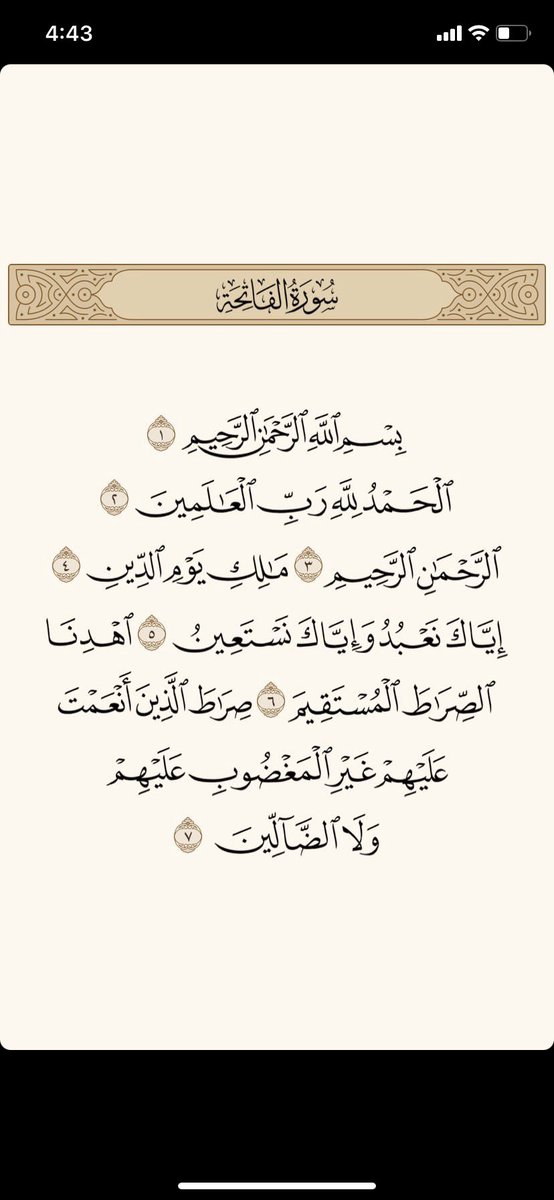 4:43
سُورَةُ الفَاتِحَةِ
بِسْمِ ٱللَّهِ ٱلرَّحْمَٰنِ ٱلرَّحِيمِ ١
ٱلْحَمْدُ لِلَّهِ رَبِّ ٱلْعَٰلَمِينَ ٢
ٱلرَّحْمَٰنِ ٱلرَّحِيمِ ٣ مَٰلِكِ يَوْمِ ٱلدِّينِ ٤
إِيَّاكَ نَعْبُدُ وَإِيَّاكَ نَسْتَعِينُ ٥ ٱهْدِنَا
ٱلصِّرَٰطَ ٱلْمُسْتَقِيمَ ٦ صِرَٰطَ ٱلَّذِينَ أَنْعَمْتَ
عَلَيْهِمْ غَيْرِ ٱلْمَغْضُوبِ عَلَيْهِمْ
وَلَا ٱلضَّآلِّينَ ٧